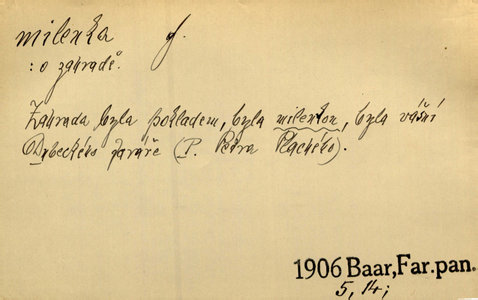 milenka f.
: o zahradě.
Zahrada byla pokladem, byla milenkou, byla vášní
Dubeckého faráře (P. Petra Plachého).
1906 Baar, Far.pan.
5, 14;